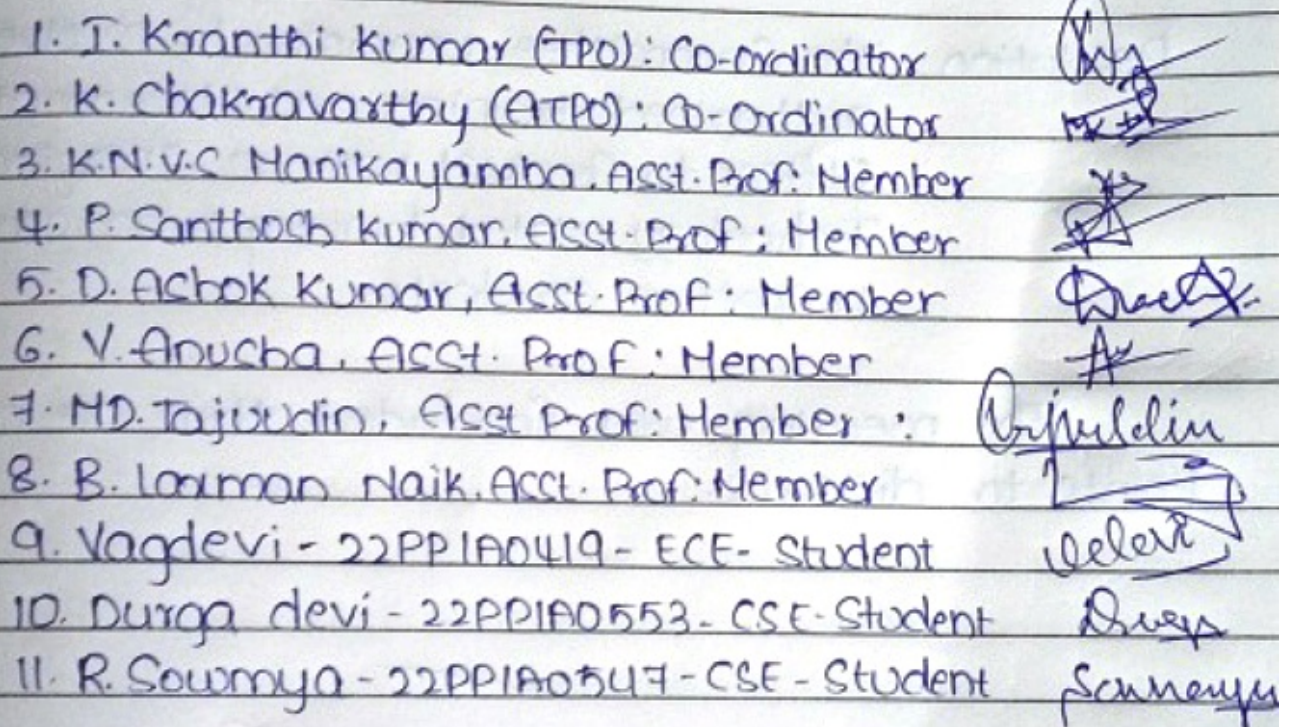 1. T. Kranthi Kumar (TPO): Co-ordinator
2. K. Chakravarthy (ATPO): Co-Ordinator
3. K.N.V.S Manikayamba, Asst. Prof: Member
4. P. Santhosh Kumar, Asst. Prof: Member
5. D. Ashok Kumar, Asst. Prof: Member
6. V. Anusha, Asst. Prof: Member
7. MD. Tajuddin, Asst Prof: Member :
8. B. Laxman Naik, Asst. Prof: Member
9. Vagdevi - 22PP1A0419 - ECE - Student
10. Durga devi - 22PP1A0553 - CSE - Student
11. R. Sowmya - 22PP1A0547 - CSE - Student